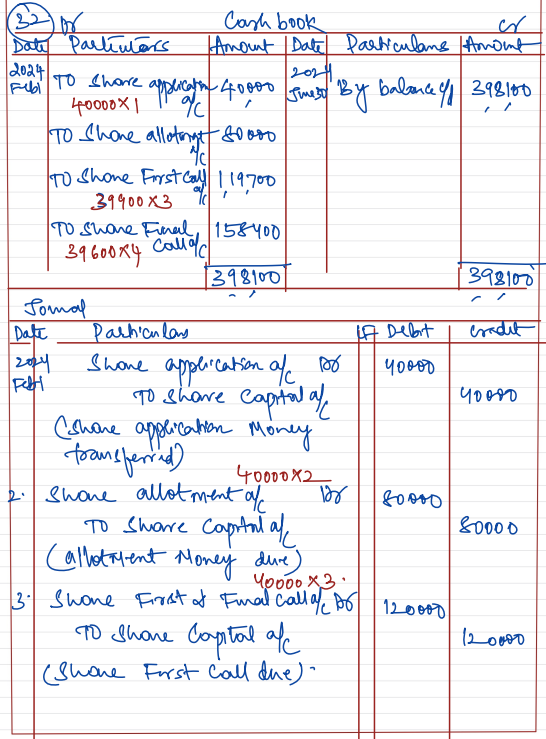 32 Dr Cash book Cr
Date Particulars Amount Date Particulars Amount
2024 Feb 1 TO Share application a/c 40000 2024 June 30 By balance c/d 398100
40000×1
TO Share allotment a/c 80000
TO Share First Call a/c 119700
39900×3
TO Share Final Call a/c 158400
39600×4
398100 398100
Jornal
Date Particulars LF Debit Credit
2024 Feb 1 Share application a/c Dr 40000
TO Share Capital a/c 40000
(Share application Money
transferred)
40000×2
2. Share allotment a/c Dr 80000
TO Share Capital a/c 80000
(allotment Money due)
40000×3.
3. Share First & Final Call a/c Dr 120000
TO Share Capital a/c 120000
(Share First Call due).